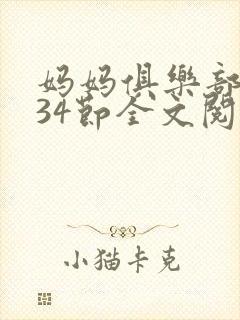 妈妈俱樂部
34節全文閱
小猫卡克